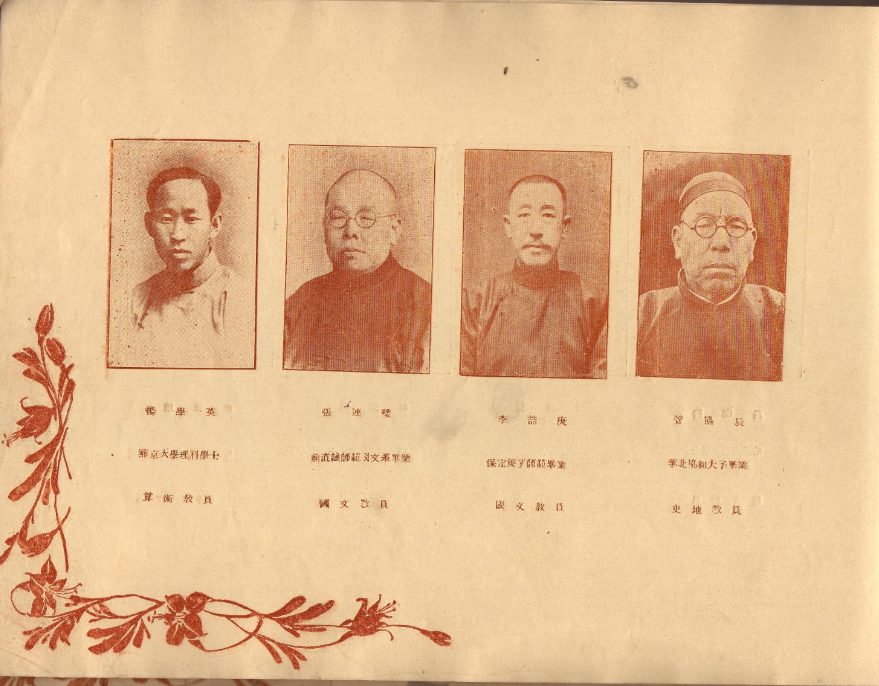 楊學英
燕京大學理科學士
算術教員
張連璧
前直隸師範國文系畢業
國文教員
李喆庚
保定優級師範畢業
國文教員
管協晨
華北協和大學畢業
史地教員